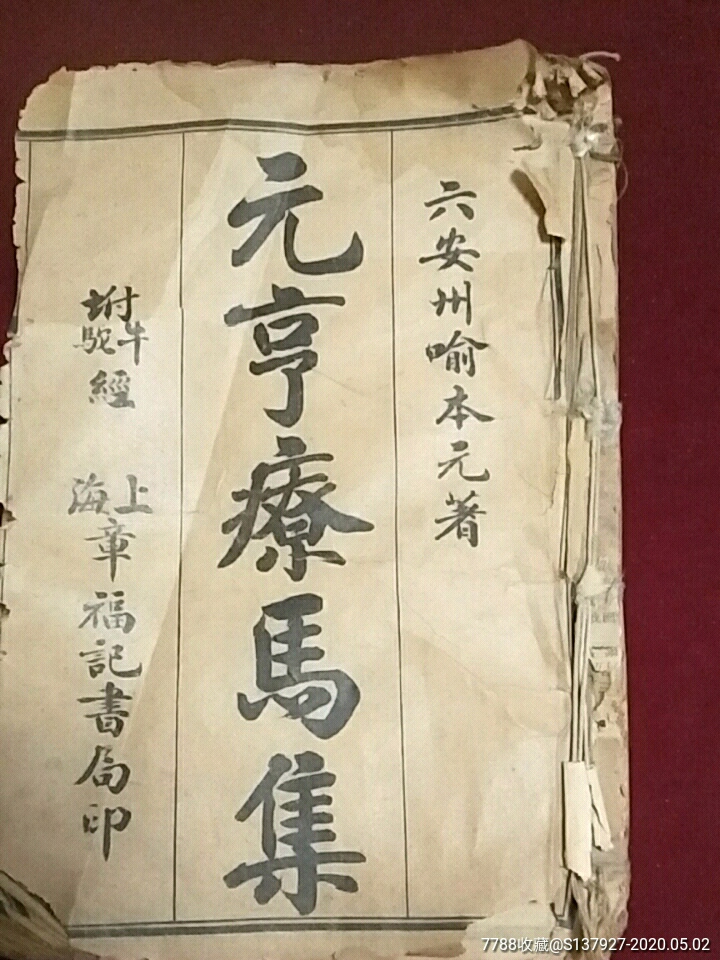 六安州喻本元著
元亨療馬集
坿牛駝經
上海章福記書局印
7788收藏@S137927-2020.05.02